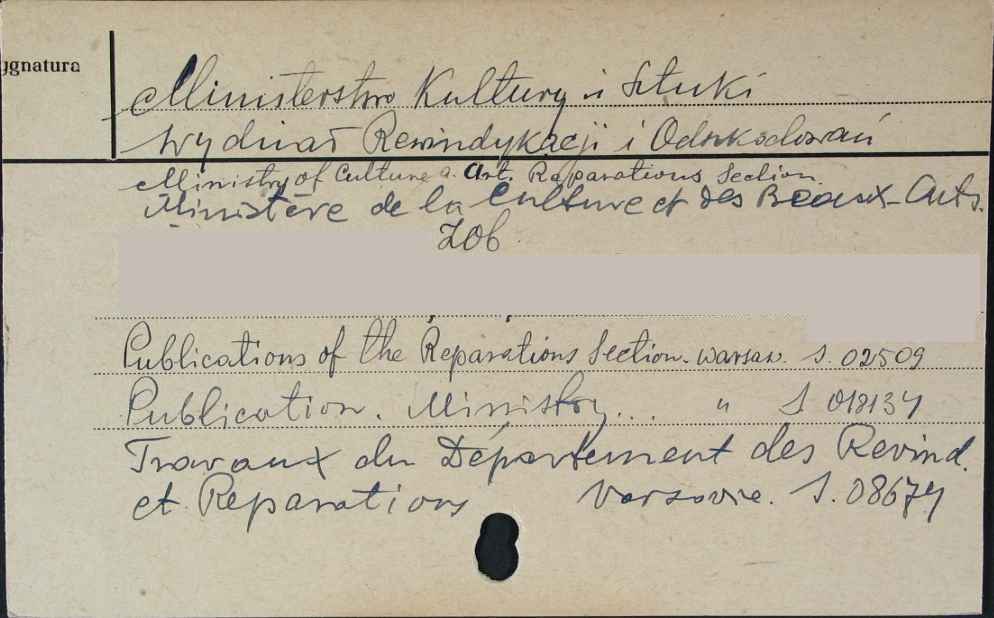 ygnatura
Ministerstwo Kultury i Sztuki
Wydział Rewindykacji i Odszkodowań
Ministry of Culture a. Art. Raparations Section
Ministère de la Culture et des Beaux-Arts.
Zob
Publications of the Reparations Section. Warsaw. S. 02509
Publication. Ministry... " S 018134
Travaux du Département des Revind.
et Reparations Varsovie. S. 08674